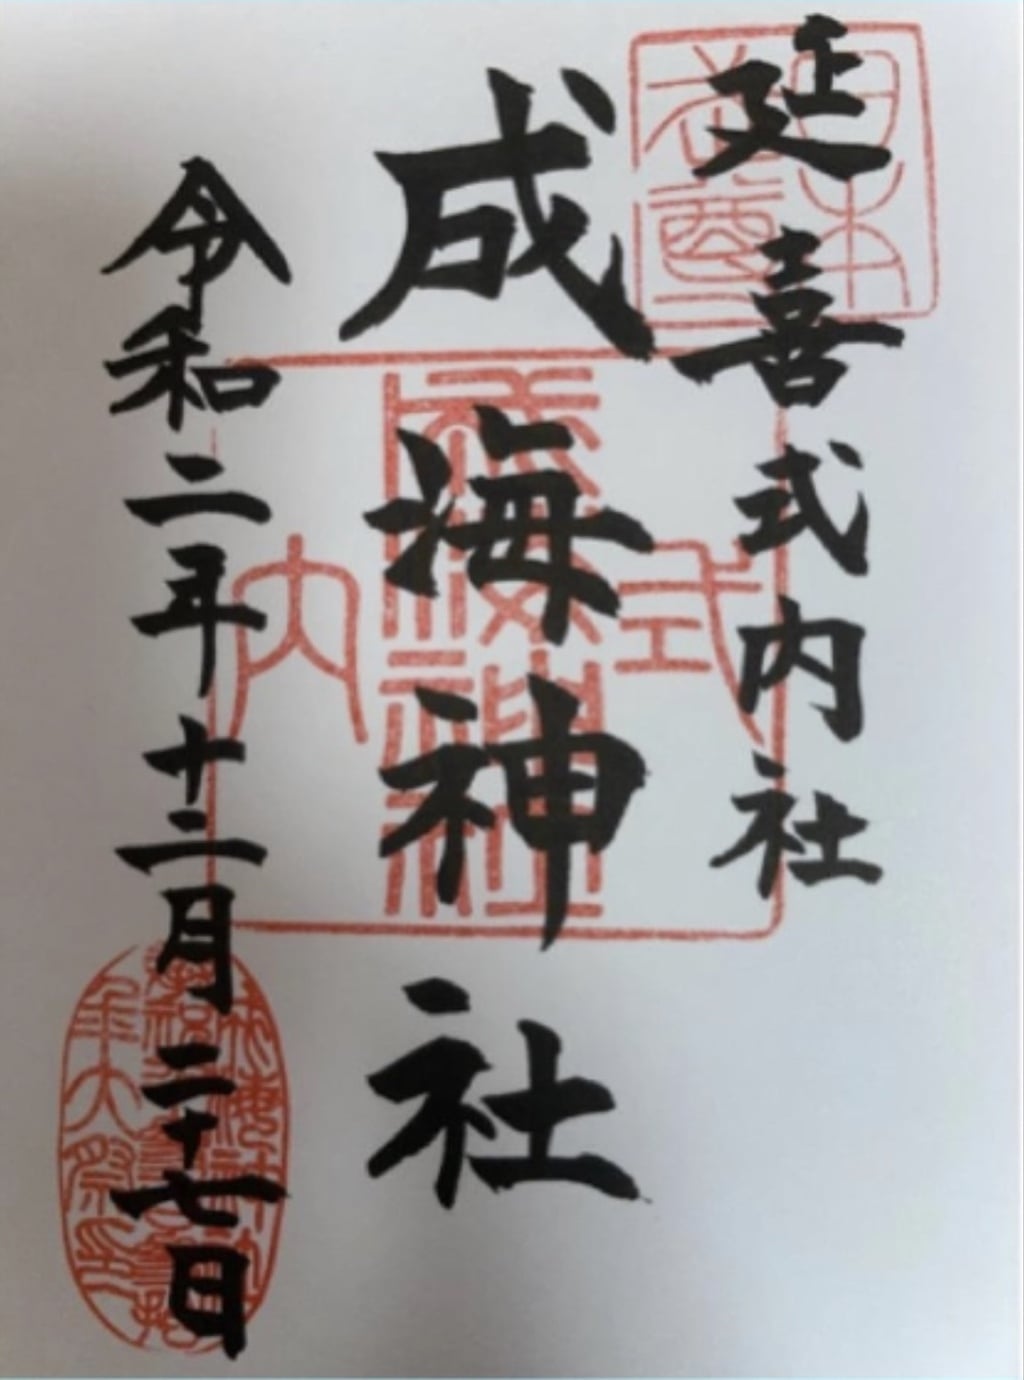 延喜式内社
成海神社
令和二年十二月二十七日
式
内